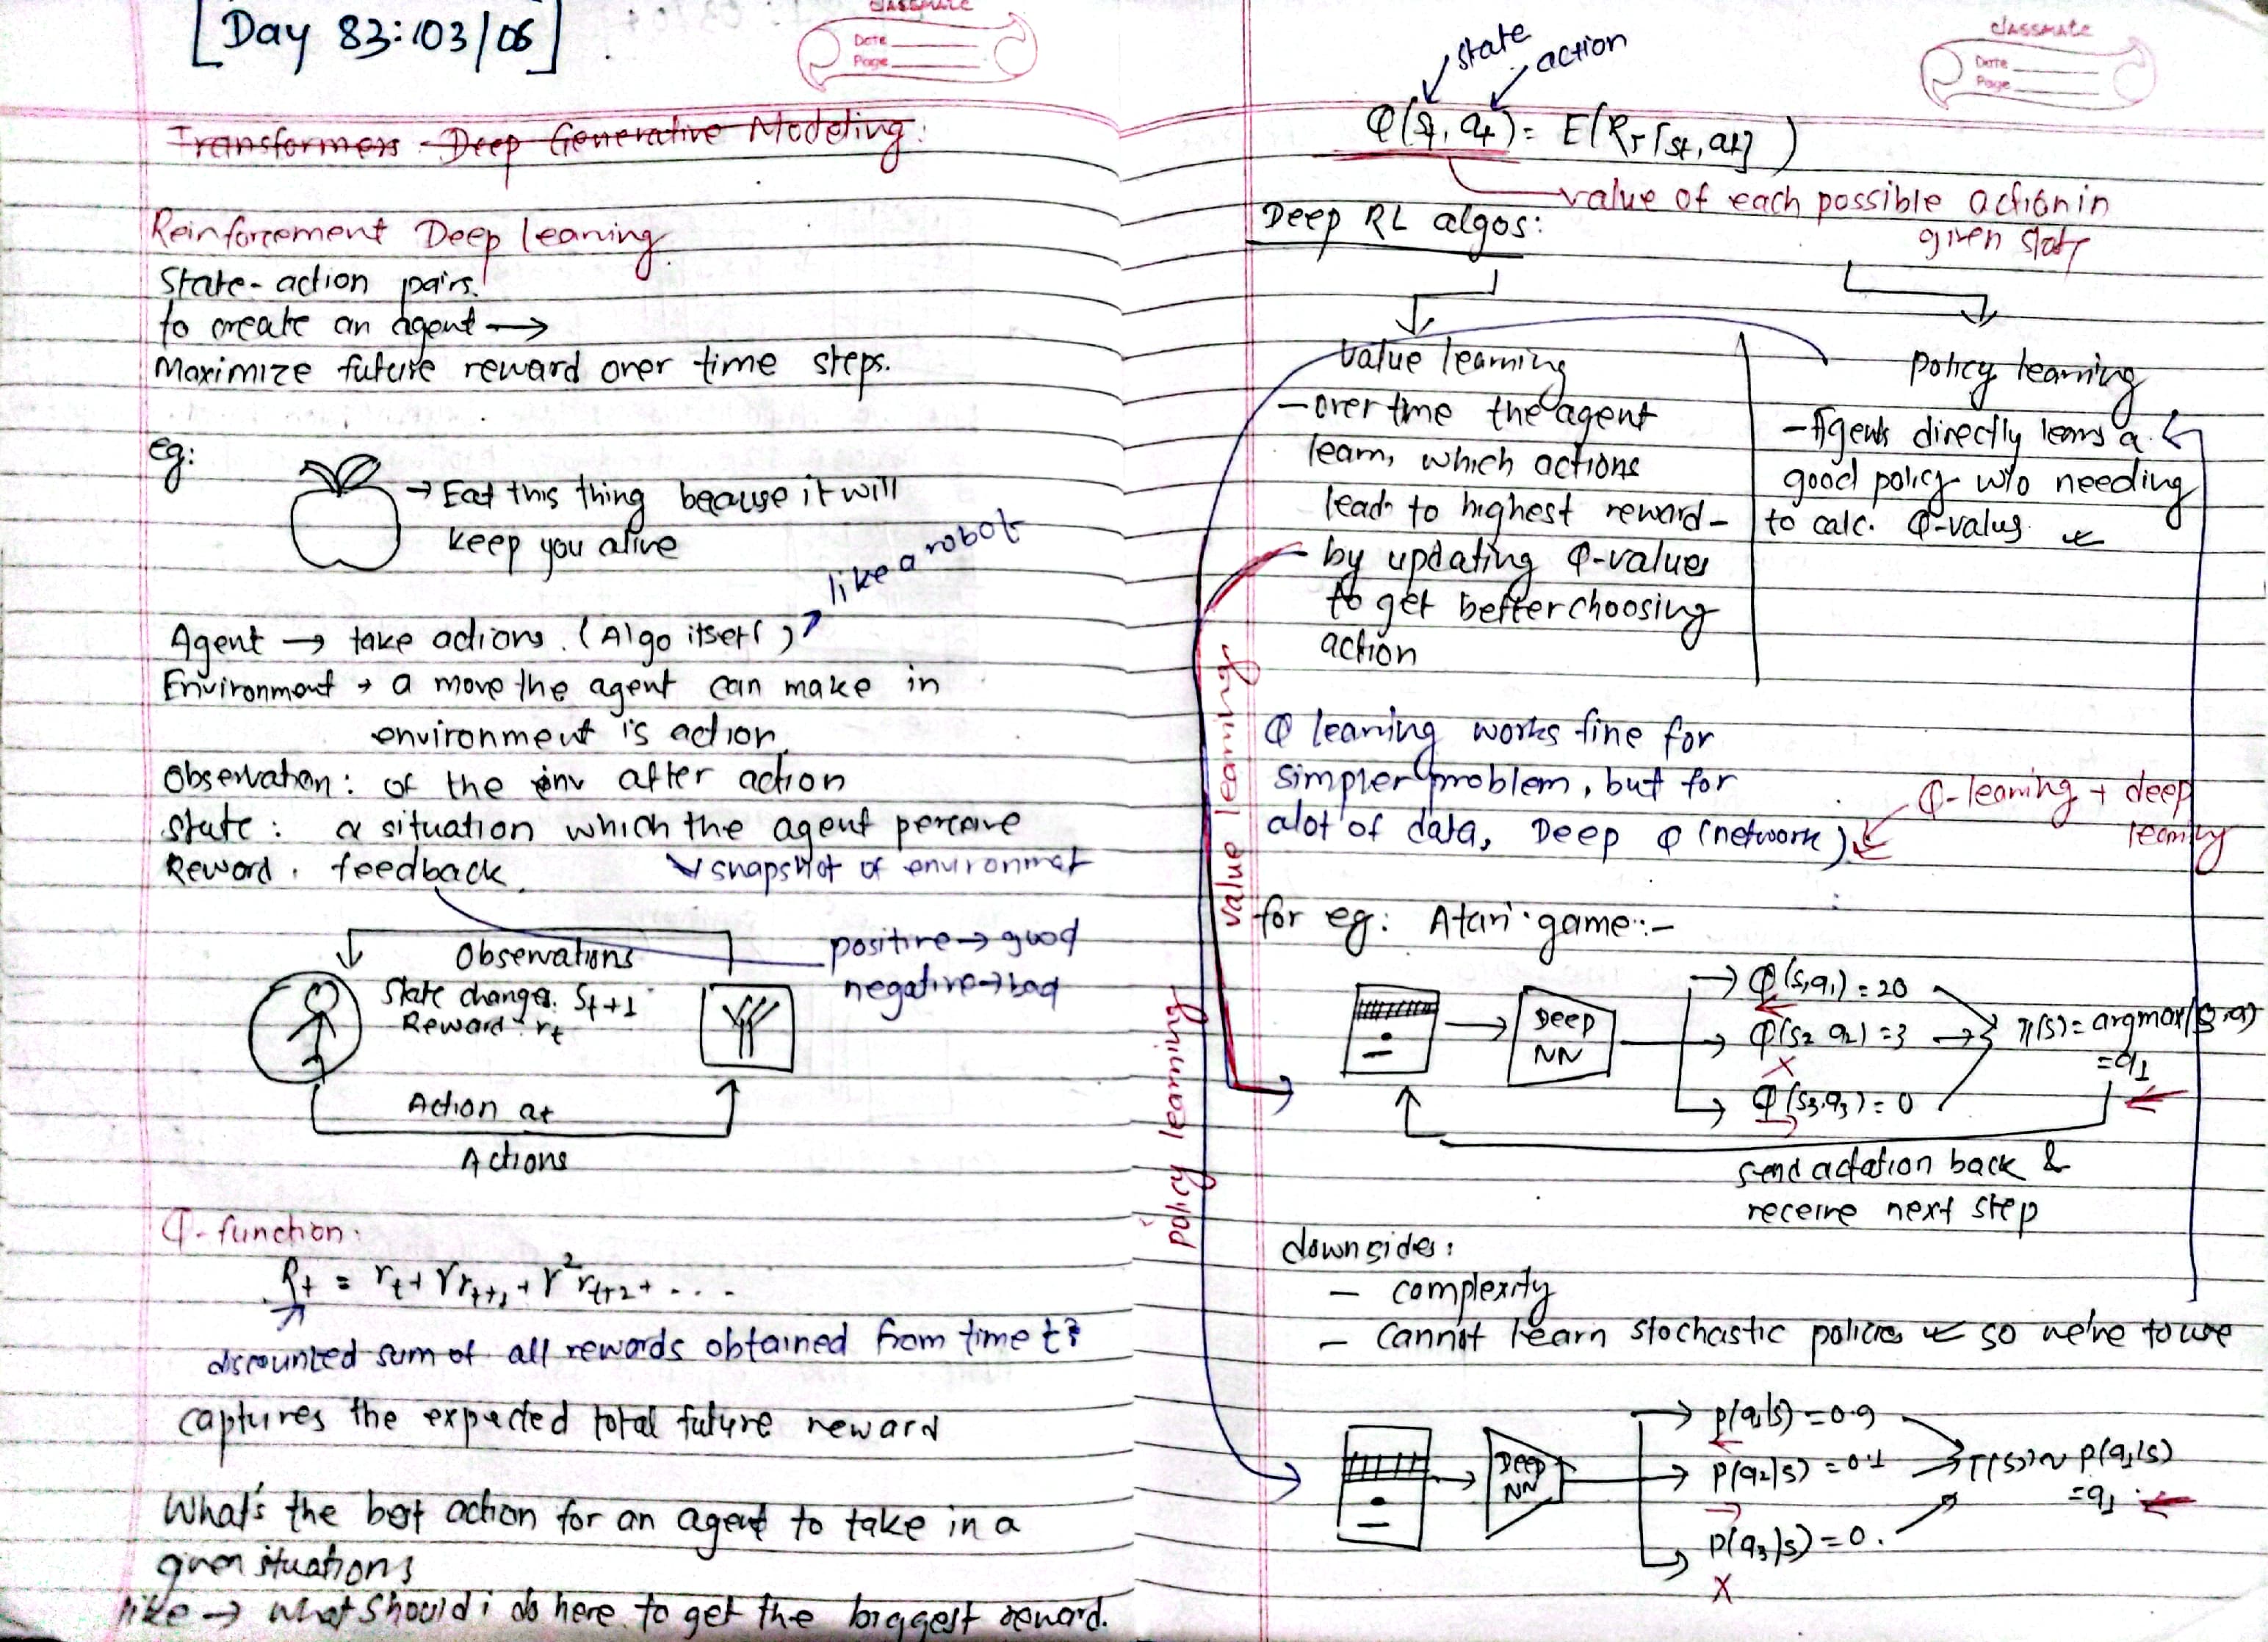 [Day 83: 03/06]
classmate
Date
Page
Transformers - Deep Generative Modeling:
Reinforcement Deep leaning
State-action pairs.
to create an agent →
Maximize future reward over time steps.
eg:
→ Eat this thing because it will
keep you alive
like a robot
Agent → take actions. (Algo itself)
Environment → a move the agent can make in
environment is action.
Observation: of the env after action
state: a situation which the agent percave
Reward. feedback.
snapshot of environmet
positive → good
negative → bad
Observations
State changes: St+1
Reward: rt
Action at
Actions
Q-function:
Rt = rt + γrt+1 + γ²rt+2 + ...
discounted sum of all rewards obtained from time t?
captures the expected total future reward
What's the best action for an agent to take in a
given situations
like → what should i do here to get the biggest reward.
classmate
Date
Page
state
action
Q(st, at) = E(RT[st, at])
value of each possible action in
given state
Deep RL algos:
value learning
- over time the agent
learn, which actions
lead to highest reward -
by updating Q-values
to get better choosing
action
policy learning
- Agents directly learns a
good policy w/o needing
to calc. Q-values
Q leaning works fine for
simpler problem, but for
alot of data, Deep Q (network)
Q-leaning + deep
leaning
value learning
policy learning
for eg: Atari game:-
Deep
NN
Q(s,a1) = 20
Q(s2 a2) = 3
X
Q(s3,a3) = 0
π(s) = argmax(s,a)
= a1
send actation back &
receive next step
downsides:
- complexity
- Cannot learn stochastic policies ← so we've to use
Deep
NN
p(a1|s) = 0.9
p(a2|s) = 0.1
p(a3|s) = 0.
X
π(s) ~ p(a1|s)
= a1